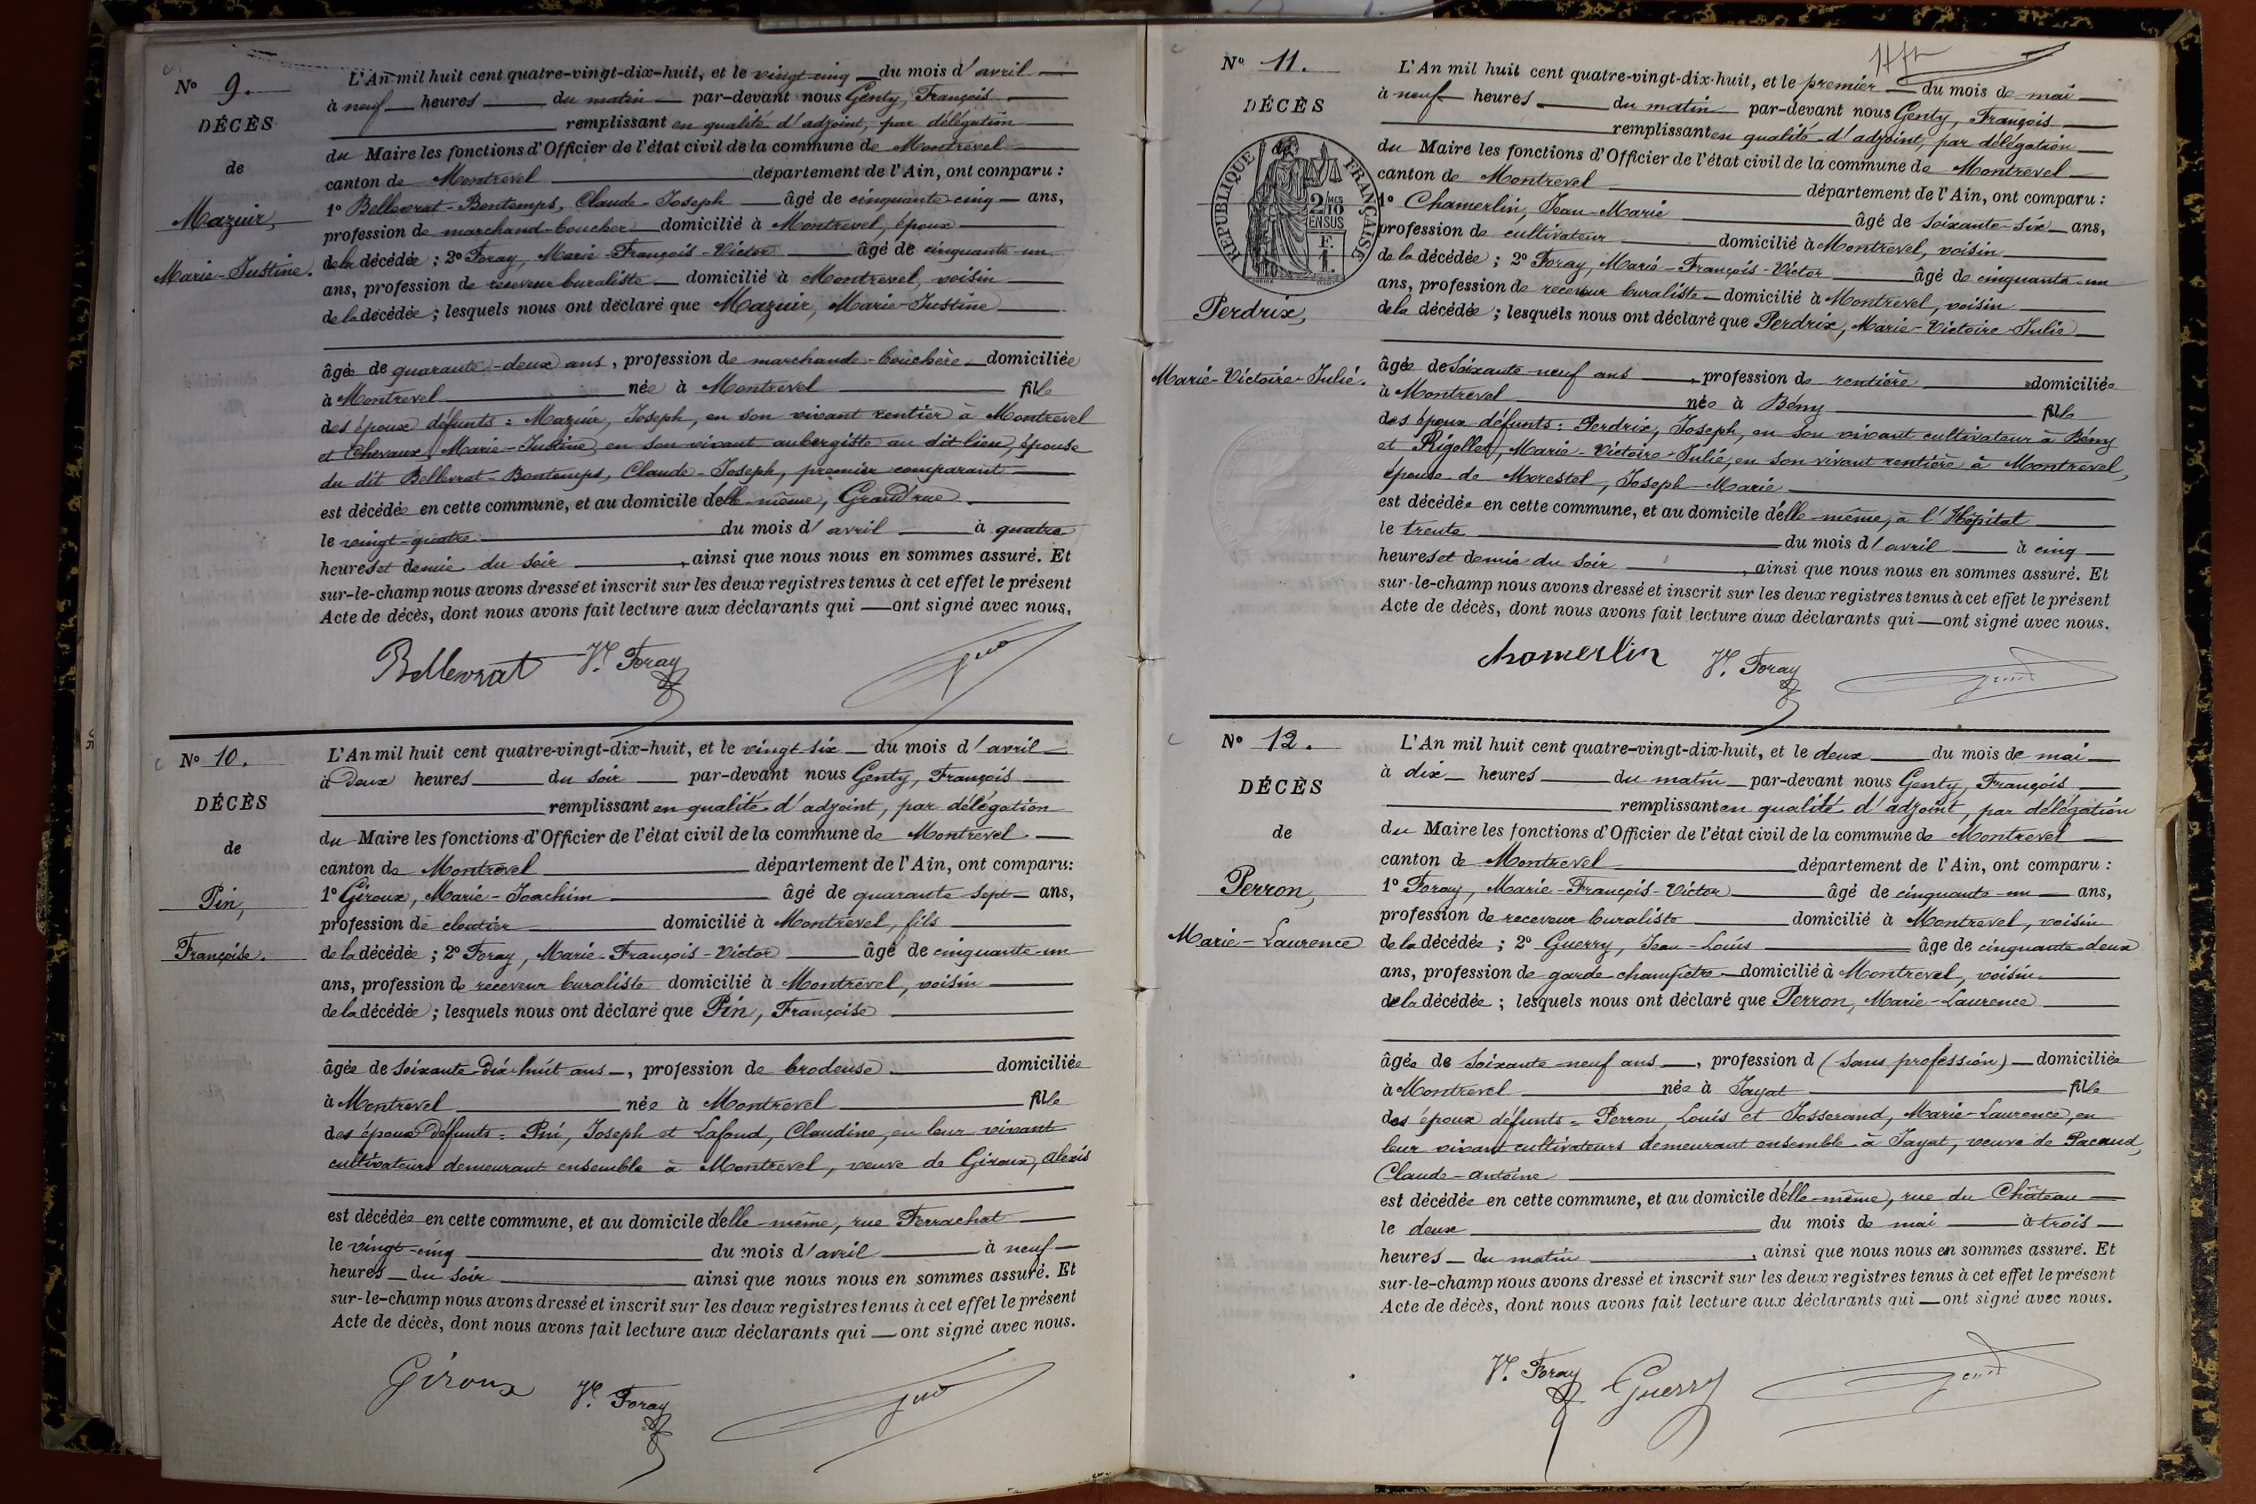 N° 9.
DÉCÈS
de
Mazuir,
Marie-Justine.
L'An mil huit cent quatre-vingt-dix-huit, et le vingt-cinq du mois d'avril
à neuf heures du matin par-devant nous Genty, François
remplissant en qualité d'adjoint, par délégation
du Maire les fonctions d'Officier de l'état civil de la commune de Montrevel
canton de Montrevel département de l'Ain, ont comparu :
1° Bellevrat-Bontemps, Claude-Joseph âgé de cinquante-cinq ans,
profession de marchand-boucher domicilié à Montrevel, époux
de la décédée ; 2° Foray, Marie-François-Victor âgé de cinquante-un
ans, profession de receveur buraliste domicilié à Montrevel, voisin
de la décédée ; lesquels nous ont déclaré que Mazuir, Marie-Justine
âgée de quarante-deux ans, profession de marchande-bouchère domiciliée
à Montrevel née à Montrevel fille
des époux défunts : Mazuir, Joseph, en son vivant rentier à Montrevel
et Chevaux, Marie-Justine, en son vivant aubergiste au dit lieu, épouse
du dit Bellevrat-Bontemps, Claude-Joseph, premier comparant
est décédée en cette commune, et au domicile d'elle-même, Grand'rue
le vingt-quatre du mois d'avril à quatre
heures et demie du soir, ainsi que nous nous en sommes assuré. Et
sur-le-champ nous avons dressé et inscrit sur les deux registres tenus à cet effet le présent
Acte de décès, dont nous avons fait lecture aux déclarants qui ont signé avec nous.
Bellevrat Vr. Foray
N° 10.
DÉCÈS
de
Pin,
Françoise.
L'An mil huit cent quatre-vingt-dix-huit, et le vingt-six du mois d'avril
à deux heures du soir par-devant nous Genty, François
remplissant en qualité d'adjoint, par délégation
du Maire les fonctions d'Officier de l'état civil de la commune de Montrevel
canton de Montrevel département de l'Ain, ont comparu :
1° Giroux, Marie-Joachim âgé de quarante-sept ans,
profession de cloutier domicilié à Montrevel, fils
de la décédée ; 2° Foray, Marie-François-Victor âgé de cinquante-un
ans, profession de receveur buraliste domicilié à Montrevel, voisin
de la décédée ; lesquels nous ont déclaré que Pin, Françoise
âgée de soixante-dix-huit ans, profession de brodeuse domiciliée
à Montrevel née à Montrevel fille
des époux défunts = Pin, Joseph et Lafond, Claudine, en leur vivant
cultivateurs demeurant ensemble à Montrevel, veuve de Giroux, Alexis
est décédée en cette commune, et au domicile d'elle-même, rue Ferrachat
le vingt-cinq du mois d'avril à neuf
heures du soir ainsi que nous nous en sommes assuré. Et
sur-le-champ nous avons dressé et inscrit sur les deux registres tenus à cet effet le présent
Acte de décès, dont nous avons fait lecture aux déclarants qui ont signé avec nous.
Giroux Vr. Foray
N° 11.
DÉCÈS
RÉPUBLIQUE FRANÇAISE
2/10 EN SUS
F. 1.
Perdrix,
Marie-Victoire-Julie.
L'An mil huit cent quatre-vingt-dix-huit, et le premier du mois de mai
à neuf heures du matin par-devant nous Genty, François
remplissant en qualité d'adjoint, par délégation
du Maire les fonctions d'Officier de l'état civil de la commune de Montrevel
canton de Montrevel département de l'Ain, ont comparu :
1° Chamerlin, Jean-Marie âgé de soixante-six ans,
profession de cultivateur domicilié à Montrevel, voisin
de la décédée ; 2° Foray, Marie-François-Victor âgé de cinquante-un
ans, profession de receveur buraliste domicilié à Montrevel, voisin
de la décédée ; lesquels nous ont déclaré que Perdrix, Marie-Victoire-Julie
âgée de soixante-neuf ans, profession de rentière domiciliée
à Montrevel née à Bény fille
des époux défunts : Perdrix, Joseph, en son vivant cultivateur à Bény
et Rigollet, Marie-Victoire-Julie, en son vivant rentière à Montrevel,
épouse de Morestel, Joseph-Marie
est décédée en cette commune, et au domicile d'elle-même, à l'Hôpital
le trente du mois d'avril à cinq
heures et demie du soir, ainsi que nous nous en sommes assuré. Et
sur-le-champ nous avons dressé et inscrit sur les deux registres tenus à cet effet le présent
Acte de décès, dont nous avons fait lecture aux déclarants qui ont signé avec nous.
Chamerlin Vr. Foray
N° 12.
DÉCÈS
de
Perron,
Marie-Laurence
L'An mil huit cent quatre-vingt-dix-huit, et le deux du mois de mai
à dix heures du matin par-devant nous Genty, François
remplissant en qualité d'adjoint, par délégation
du Maire les fonctions d'Officier de l'état civil de la commune de Montrevel
canton de Montrevel département de l'Ain, ont comparu :
1° Foray, Marie-François-Victor âgé de cinquante-un ans,
profession de receveur buraliste domicilié à Montrevel, voisin
de la décédée ; 2° Guerry, Jean-Louis âge de cinquante-deux
ans, profession de garde champêtre domicilié à Montrevel, voisin
de la décédée ; lesquels nous ont déclaré que Perron, Marie-Laurence
âgée de soixante-neuf ans, profession d (sans profession) domiciliée
à Montrevel née à Jayat fille
des époux défunts = Perron, Louis et Josserand, Marie-Laurence, en
leur vivant cultivateurs demeurant ensemble à Jayat, veuve de Pacaud,
Claude-Antoine
est décédée en cette commune, et au domicile d'elle-même, rue du Château
le deux du mois de mai à trois
heures du matin, ainsi que nous nous en sommes assuré. Et
sur-le-champ nous avons dressé et inscrit sur les deux registres tenus à cet effet le présent
Acte de décès, dont nous avons fait lecture aux déclarants qui ont signé avec nous.
Vr. Foray Guerry